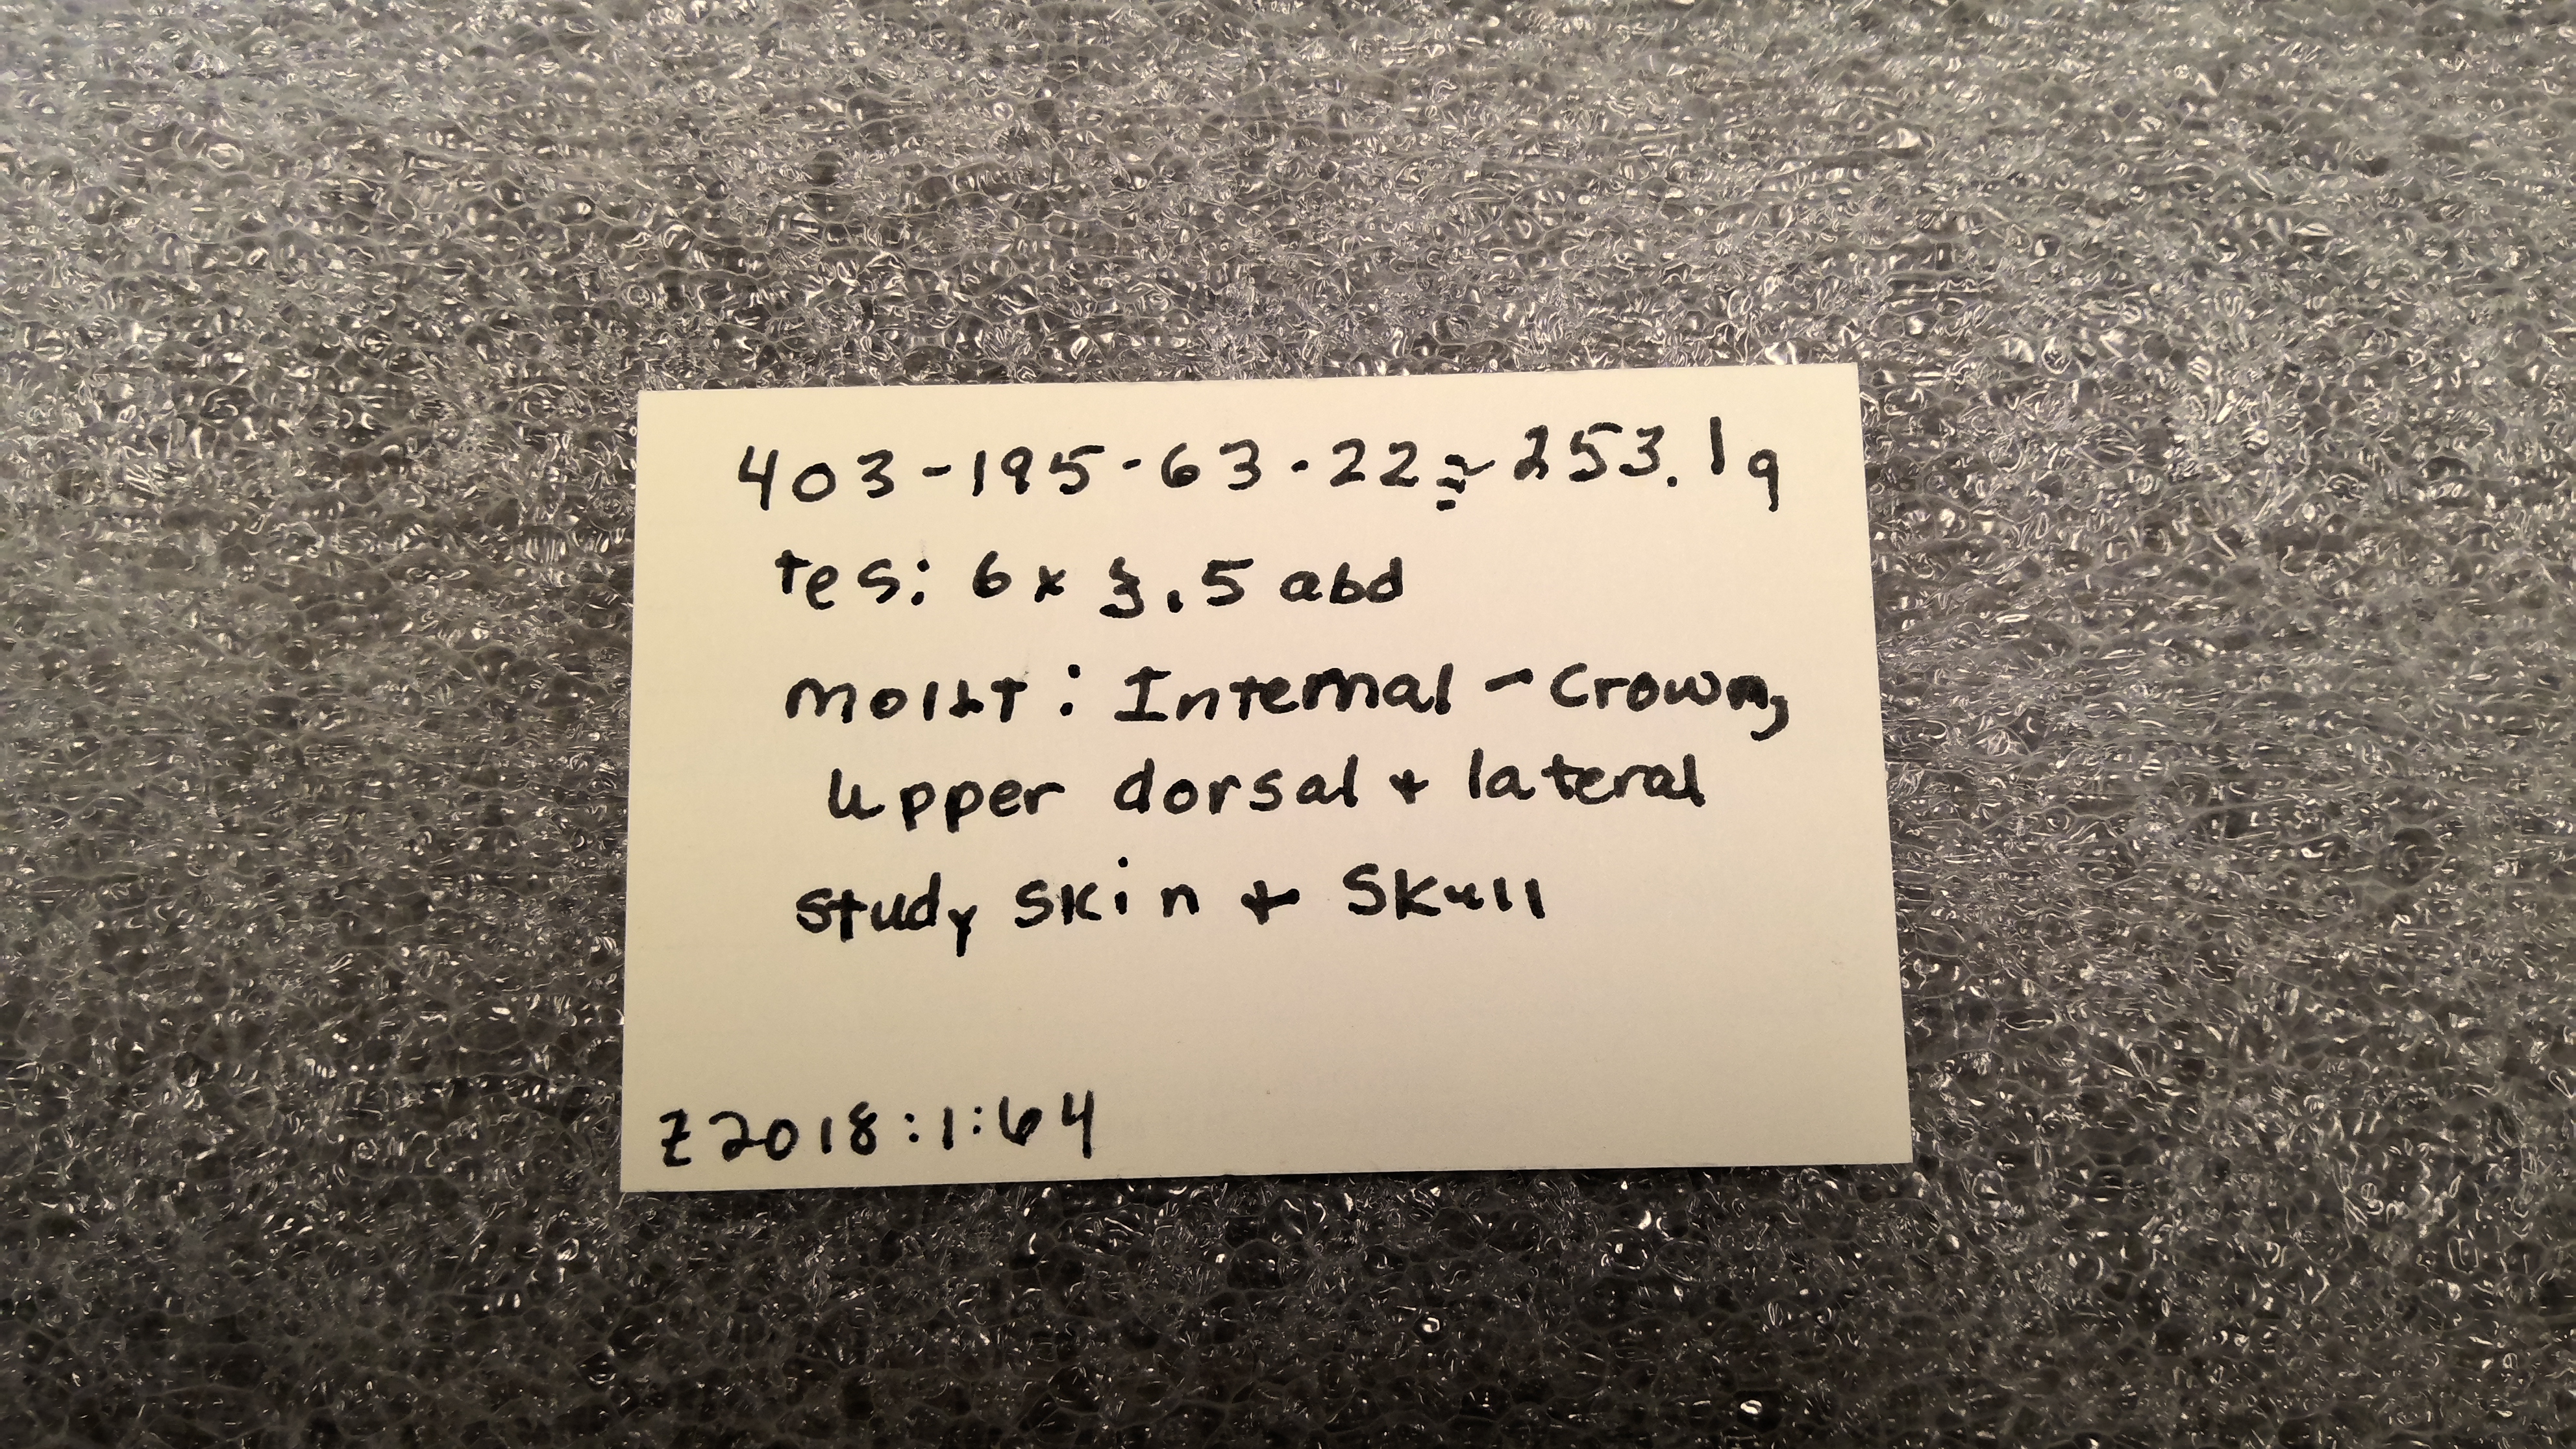 403-195-63-22≅253.1g
tes: 6x3.5 abd
molt: Internal - Crown,
upper dorsal + lateral
study skin + skull
Z2018:1:64